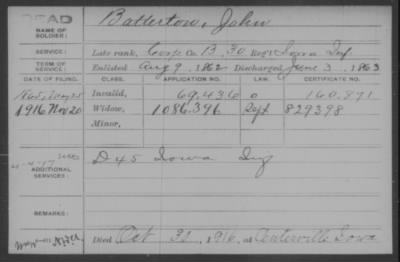 DEAD
NAME OF SOLDIER: Battertow, John
SERVICE: Late rank, Corp Co. B, 30 Reg't Iowa Inf
TERM OF SERVICE: Enlisted Aug 9, 1862 Discharged June 3, 1863
DATE OF FILING. CLASS. APPLICATION NO. LAW. CERTIFICATE NO.
1865, May 25 Invalid, 69,436 0 160,871
1916 Nov 20 Widow, 1086,396 Sept 829398
Minor,
D 45 Iowa Inf
ADDITIONAL SERVICES:
REMARKS:
Died Oct 31, 1916, at Centerville Iowa